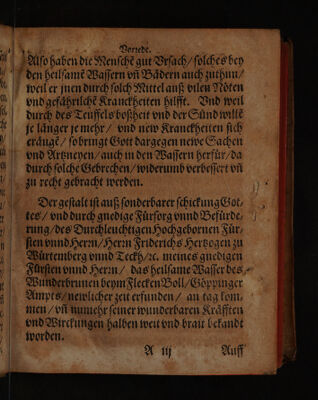 Vorrede.
Also haben die Menschẽ gut Vrsach / solches bey
den heilsamẽ Wassern vñ Bädern auch zuthun /
weil er jnen durch solch Mittel auß vilen Nöten
vnd gefährlichẽ Kranckheiten hilfft. Vnd weil
durch des Teuffels boßheit vnd der Sünd wille
je länger je mehr / vnd new Kranckheiten sich
eräugẽ / so bringt Gott dargegen newe Sachen
vnd Artzneyen / auch in den Wassern herfür / da
durch solche Gebrechen / widerumb verbessert vñ
zu recht gebracht werden.
Der gestalt ist auß sonderbarer schickung Got-
tes / vnd durch gnedige Fürsorg vnnd Befürde-
rung / des Durchleuchtigen Hochgebornen Für-
sten vnnd Herrn / Herrn Friderichs Hertzogen zu
Würtemberg vnnd Teckh / ꝛc. meines gnedigen
Fürsten vnnd Herrn / das heilsame Wasser des
Wunderbrunen beym Flecken Boll / Göppinger
Ampts / newlicher zeit erfunden / an tag kom-
men / vñ nunmehr seiner wunderbaren Kräfften
vnd Wirckungen halben weit vnd brait bekandt
worden.
A iij Auff